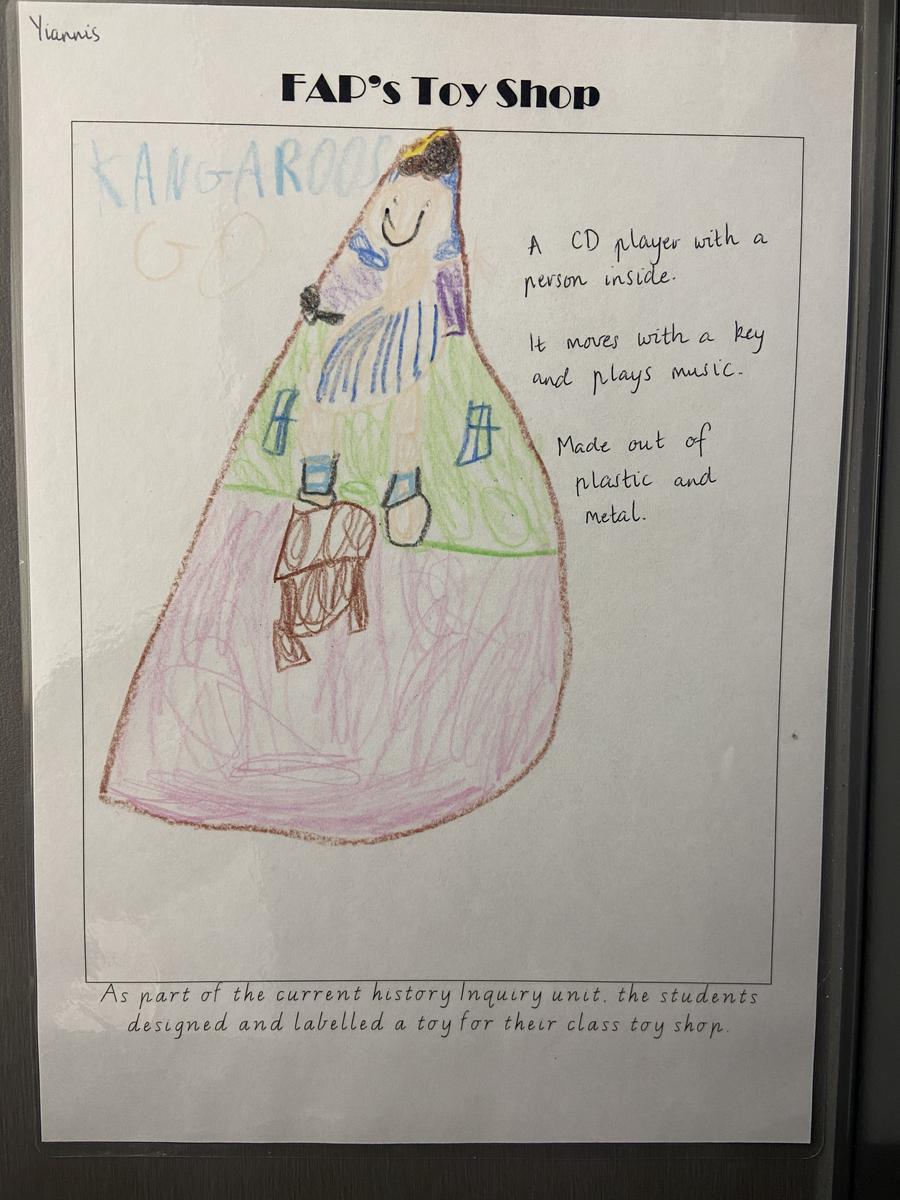 Yiannis
FAP's Toy Shop
KANGAROOS
GO
A CD player with a
person inside.
It moves with a key
and plays music.
Made out of
plastic and
metal.
As part of the current history Inquiry unit. the students
designed and labelled a toy for their class toy shop.